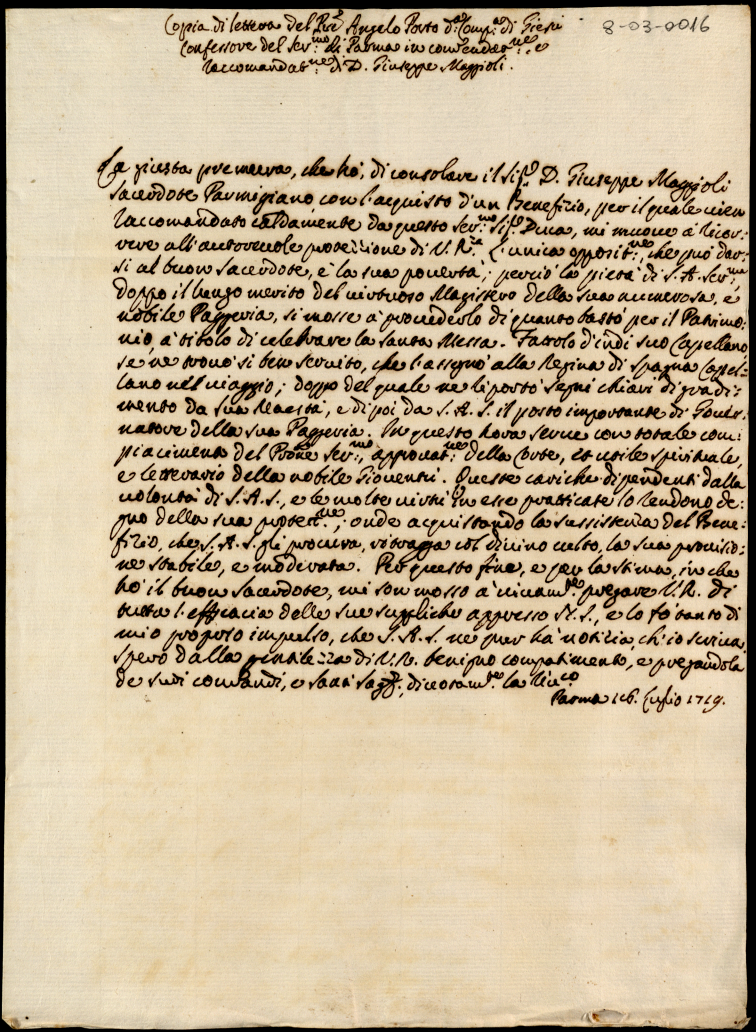 Copia di lettera del Pre Angelo Porto d.a Comp.a di Giesù
8-03-0016
Confessore del Ser.mo di Parma in commendat.ne, e
raccomandat.ne di D. Giuseppe Maggioli.
La giusta premura, che hò, di consolare il Sig.r D. Giuseppe Maggioli
sacerdote Parmigiano con l'acquisto d'un Benefizio, per il quale vien
raccomandato caldamente da questo Ser.mo Sig.r Duca, mi muove à ricor-
rere all'autorevole protezzione di V. R.a L'unica opposit.ne, che può dar-
si al buon sacerdote, è la sua povertà; perciò la pietà di S. A. Ser.ma,
doppo il lungo merito del virtuoso Magistero della sua numerosa, e
nobile Paggeria, si mosse à provederlo di quanto bastò per il Patrimo-
nio, à titolo di celebrare la santa Messa. Fattolo d'indi suo Capellano
se ne trovò si ben servito, che l'assegnò alla Regina di Spagna Capel-
lano nel viaggio; doppo del quale ne riportò segni chiari di gradi-
mento da sua Maestà, e di poi da S. A. S. il posto importante di Gover-
natore della sua Paggeria. In questo hora serve con totale com-
piacimento del Prone Ser.mo, approvat.ne della Corte, et utile spirituale,
e letterario della nobile Gioventù. Queste cariche dipendenti dalla
volontà di S. A. S., e le molte virtù in esse pratticate lo rendono de-
gno della sua protet.ne; onde acquistando la sussistenza del Bene-
fizio, che S. A. S. gli procura, ritragga col divino culto, la sua provisio-
ne stabile, e moderata. Per questo fine, e per la stima, in che
hò il buon sacerdote, mi son mosso à vivam.te pregare V. R. di
tutta l'efficacia delle sue suppliche appresso S. S., e lo fò tanto di
mio proprio impulso, che S. A. S. ne pur hà notizia, ch'io scriva.
spero dalla gentilezza di V. R. benigno compatimento, e pregandola
de suoi comandi, e divotam.te la
Parma 16. Luglio 1719.